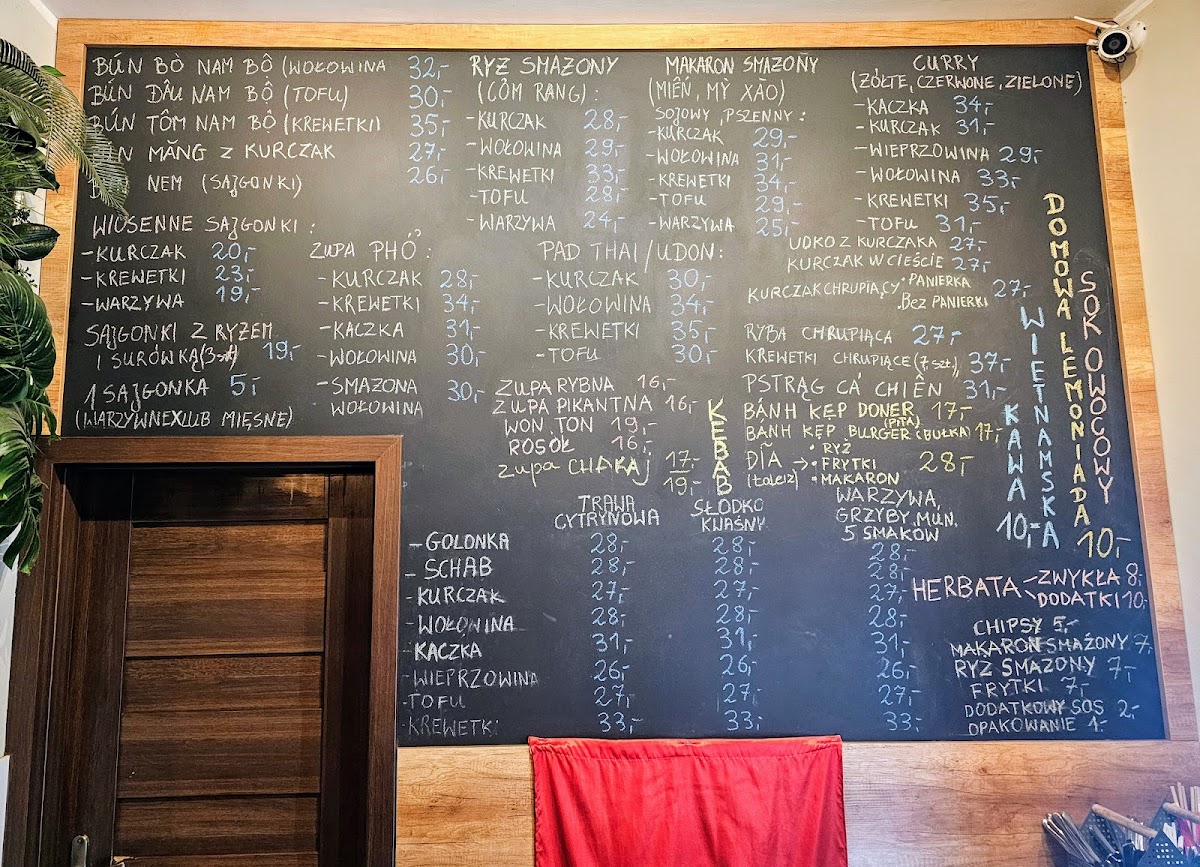 BÚN BÒ NAM BỘ (WOŁOWINA 32,-
BÚN ĐẬU NAM BỘ (TOFU) 30,-
BÚN TÔM NAM BỘ (KREWETKI) 35,-
MĂNG Z KURCZAK 27,-
NEM (SAJGONKI) 26,-
WIOSENNE SAJGONKI :
-KURCZAK 20,-
-KREWETKI 23,-
-WARZYWA 19,-
SAJGONKI Z RYŻEM
I SURÓWKĄ (3szt) 19,-
1 SAJGONKA 5,-
(WARZYWNEXLUB MIĘSNE)
ZUPA PHỞ :
-KURCZAK 28,-
-KREWETKI 34,-
-KACZKA 31,-
-WOŁOWINA 30,-
-SMAŻONA 30,-
WOŁOWINA
RYŻ SMAŻONY
(CƠM RANG) :
-KURCZAK 28,-
-WOŁOWINA 29,-
-KREWETKI 33,-
-TOFU 28,-
-WARZYWA 24,-
MAKARON SMAŻONY
(MIẾN, MỲ XÀO)
SOJOWY, PSZENNY :
-KURCZAK 29,-
-WOŁOWINA 31,-
-KREWETKI 34,-
-TOFU 29,-
-WARZYWA 25,-
PAD THAI / UDON :
-KURCZAK 30,-
-WOŁOWINA 34,-
-KREWETKI 35,-
-TOFU 30,-
ZUPA RYBNA 16,-
ZUPA PIKANTNA 16,-
WON TON 19,-
ROSÓŁ 16,-
ZUPA CHAKAJ 17,-
19,-
CURRY
(ŻÓŁTE, CZERWONE, ZIELONE)
-KACZKA 34,-
-KURCZAK 31,-
-WIEPRZOWINA 29,-
-WOŁOWINA 33,-
-KREWETKI 35,-
-TOFU 31,-
UDKO Z KURCZAKA 27,-
KURCZAK W CIEŚCIE 27,-
KURCZAK CHRUPIĄCY • PANIERKA 27,-
• BEZ PANIERKI
RYBA CHRUPIĄCA 27,-
KREWETKI CHRUPIĄCE (7 szt), 37,-
PSTRĄG CÁ CHIÊN 31,-
KEBAB
BÁNH KẸP DONER 17,-
(PITA)
BÁNH KẸP BURGER (BUŁKA) 17,-
DĨA → • RYŻ
(talerz) • FRYTKI 28,-
• MAKARON
KAWA WIETNAMSKA 10,-
DOMOWA LEMONIADA
SOK OWOCOWY 10,-
TRAWA CYTRYNOWA
SŁODKO KWAŚNY
WARZYWA, GRZYBY MUN, 5 SMAKÓW
-GOLONKA 28,- 28,- 28,-
-SCHAB 28,- 28,- 28,-
-KURCZAK 27,- 27,- 27,-
-WOŁOWINA 28,- 28,- 28,-
-KACZKA 31,- 31,- 31,-
-WIEPRZOWINA 26,- 26,- 26,-
-TOFU 27,- 27,- 27,-
-KREWETKI 33,- 33,- 33,-
HERBATA ZWYKŁA 8,-
DODATKI 10,-
CHIPSY 5,-
MAKARON SMAŻONY 7,-
RYŻ SMAŻONY 7,-
FRYTKI 7,-
DODATKOWY SOS 2,-
OPAKOWANIE 1,-